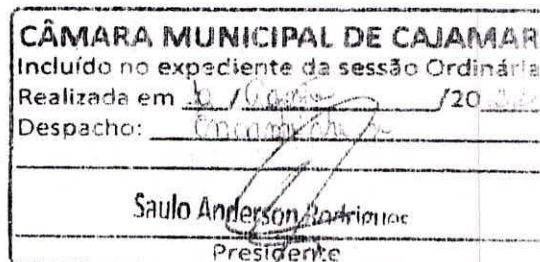 CÂMARA MUNICIPAL DE CAJAMAR
Incluído no expediente da sessão Ordinária
Realizada em / /20
Despacho:
Saulo Anderson Rodrigues
Presidente